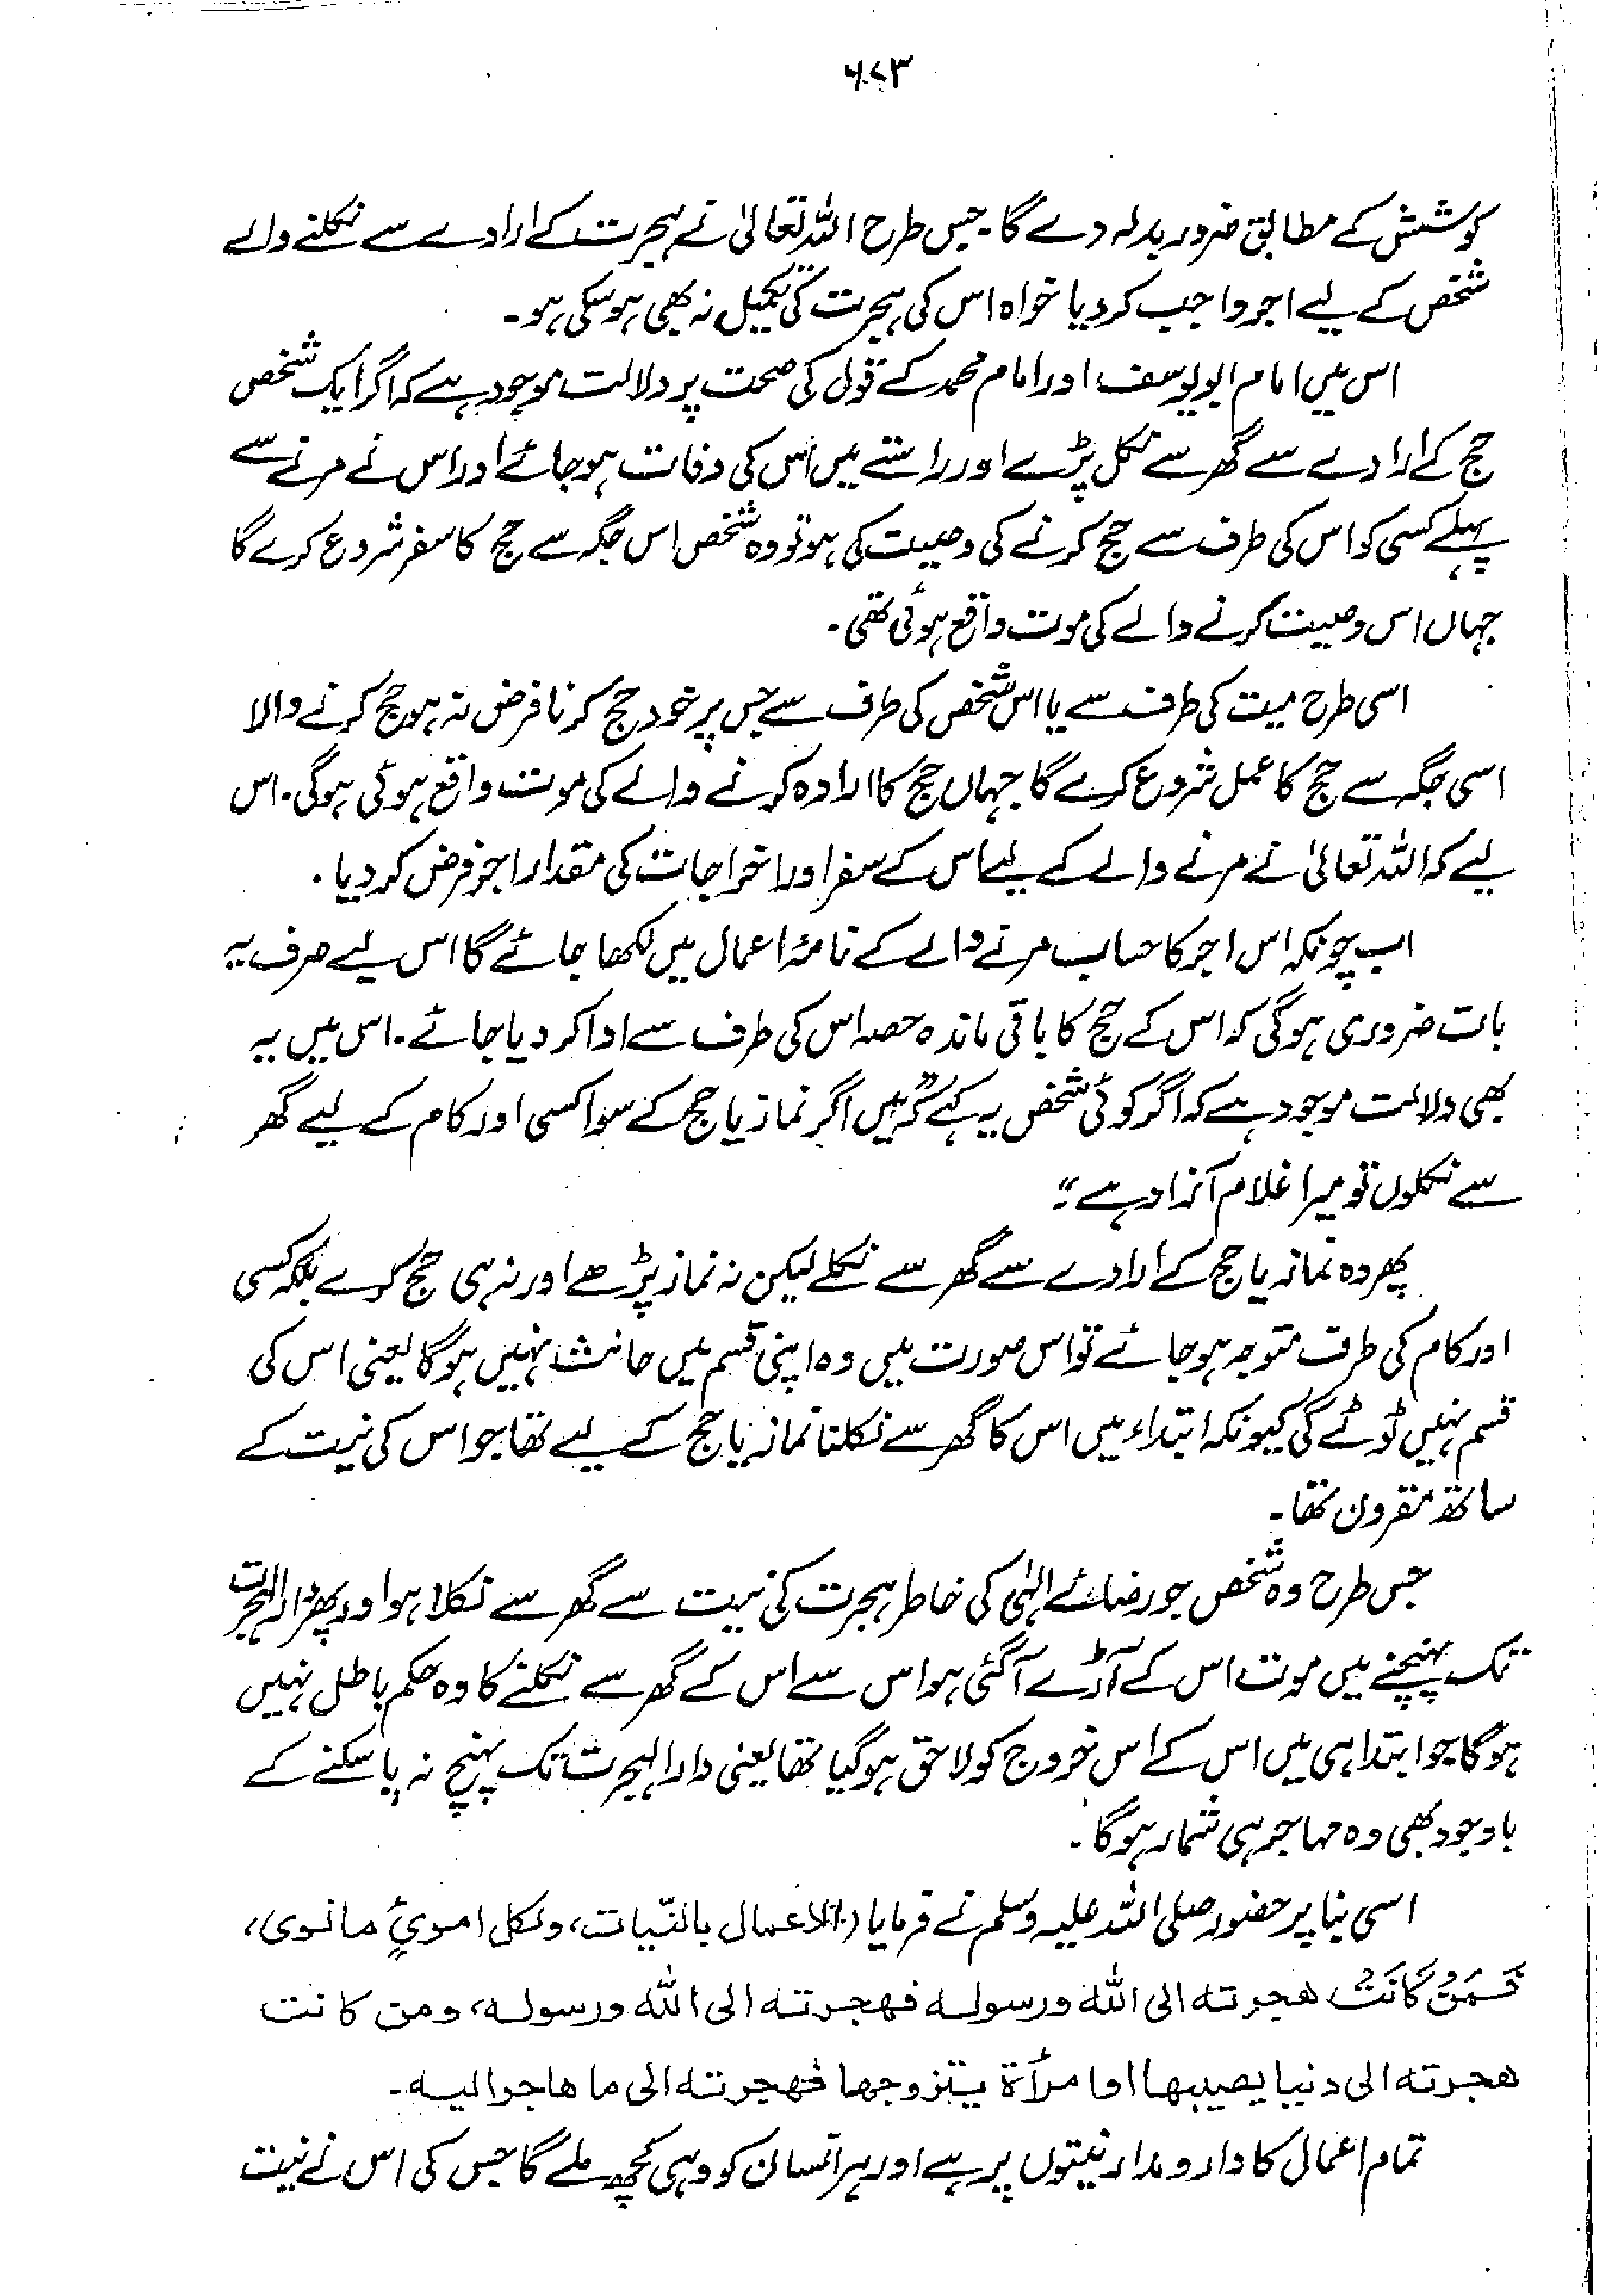 ۶۷۳
کوشش کے مطابق ضرور بدلہ دے گا۔ جس طرح اللہ تعالیٰ نے ہجرت کے ارادے سے نکلنے والے
شخص کے لیے اجر واجب کر دیا خواہ اس کی ہجرت کی تکمیل نہ بھی ہو سکی ہو۔
اس میں امام ابو یوسف اور امام محمد کے قول کی صحت پر دلالت موجود ہے کہ اگر ایک شخص
حج کے ارادے سے گھر سے نکل پڑے اور راستے میں اس کی وفات ہو جائے اور اس نے مرنے سے
پہلے کسی کو اس کی طرف سے حج کرنے کی وصیت کی ہو تو وہ شخص اس جگہ سے حج کا سفر شروع کرے گا
جہاں اس وصیت کرنے والے کی موت واقع ہوئی تھی۔
اسی طرح میت کی طرف سے یا اس شخص کی طرف سے جس پر خود حج کرنا فرض نہ ہو حج کرنے والا
اسی جگہ سے حج کا عمل شروع کرے گا جہاں حج کا ارادہ کرنے والے کی موت واقع ہوئی ہو گی۔ اس
لیے کہ اللہ تعالیٰ نے مرنے والے کے لیے اس کے سفر اور اخراجات کی مقدار اجر فرض کر دیا۔
اب چونکہ اس اجر کا حساب مرنے والے کے نامۂ اعمال میں لکھا جائے گا اس لیے صرف یہ
بات ضروری ہو گی کہ اس کے حج کا باقی ماندہ حصہ اس کی طرف سے ادا کر دیا جائے۔ اس میں یہ
بھی دلالت موجود ہے کہ اگر کوئی شخص یہ کہے کہ "میں اگر نماز یا حج کے سوا کسی اور کام کے لیے گھر
سے نکلوں تو میرا غلام آزاد ہے"۔
پھر وہ نماز یا حج کے ارادے سے گھر سے نکلے لیکن نہ نماز پڑھے اور نہ ہی حج کرے بلکہ کسی
اور کام کی طرف متوجہ ہو جائے تو اس صورت میں وہ اپنی قسم میں حانث نہیں ہو گا یعنی اس کی
قسم نہیں ٹوٹے گی کیونکہ ابتداء میں اس کا گھر سے نکلنا نماز یا حج کے لیے تھا جو اس کی نیت کے
ساتھ مقرون تھا۔
جس طرح وہ شخص جو رضائے الٰہی کی خاطر ہجرت کی نیت سے گھر سے نکلا ہو اور پھر دارالہجرت
تک پہنچنے میں موت اس کے آڑے آ گئی ہو اس سے اس کے گھر سے نکلنے کا وہ حکم باطل نہیں
ہو گا جو ابتدا ہی میں اس کے اس خروج کو لاحق ہو گیا تھا یعنی دارالہجرت تک پہنچ نہ پا سکنے کے
باوجود بھی وہ مہاجر ہی شمار ہو گا۔
اسی بنا پر حضور صلی اللہ علیہ وسلم نے فرمایا (الاعمال بالنّیات، ولکل امرئٍ ما نوی،
فَمَنْ کَانَتْ هجرته الی اللّٰه ورسوله فهجرته الی اللّٰه ورسوله، ومن کانت
هجرته الی دنیا یصیبها او امرأة یتزوجها فهجرته الی ما هاجر الیه۔
تمام اعمال کا دارومدار نیتوں پر ہے اور ہر انسان کو وہی کچھ ملے گا جس کی اس نے نیت